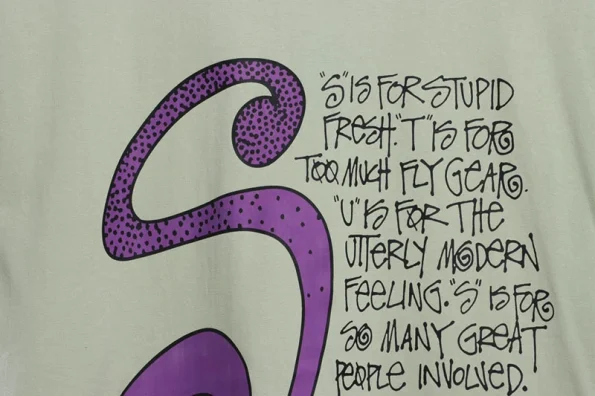 "S" IS FOR STUPID
FRESH. "T" IS FOR
TOO MUCH FLY GEAR.
"U" IS FOR THE
UTTERLY MODERN
FEELING. "S" IS FOR
SO MANY GREAT
PEOPLE INVOLVED.